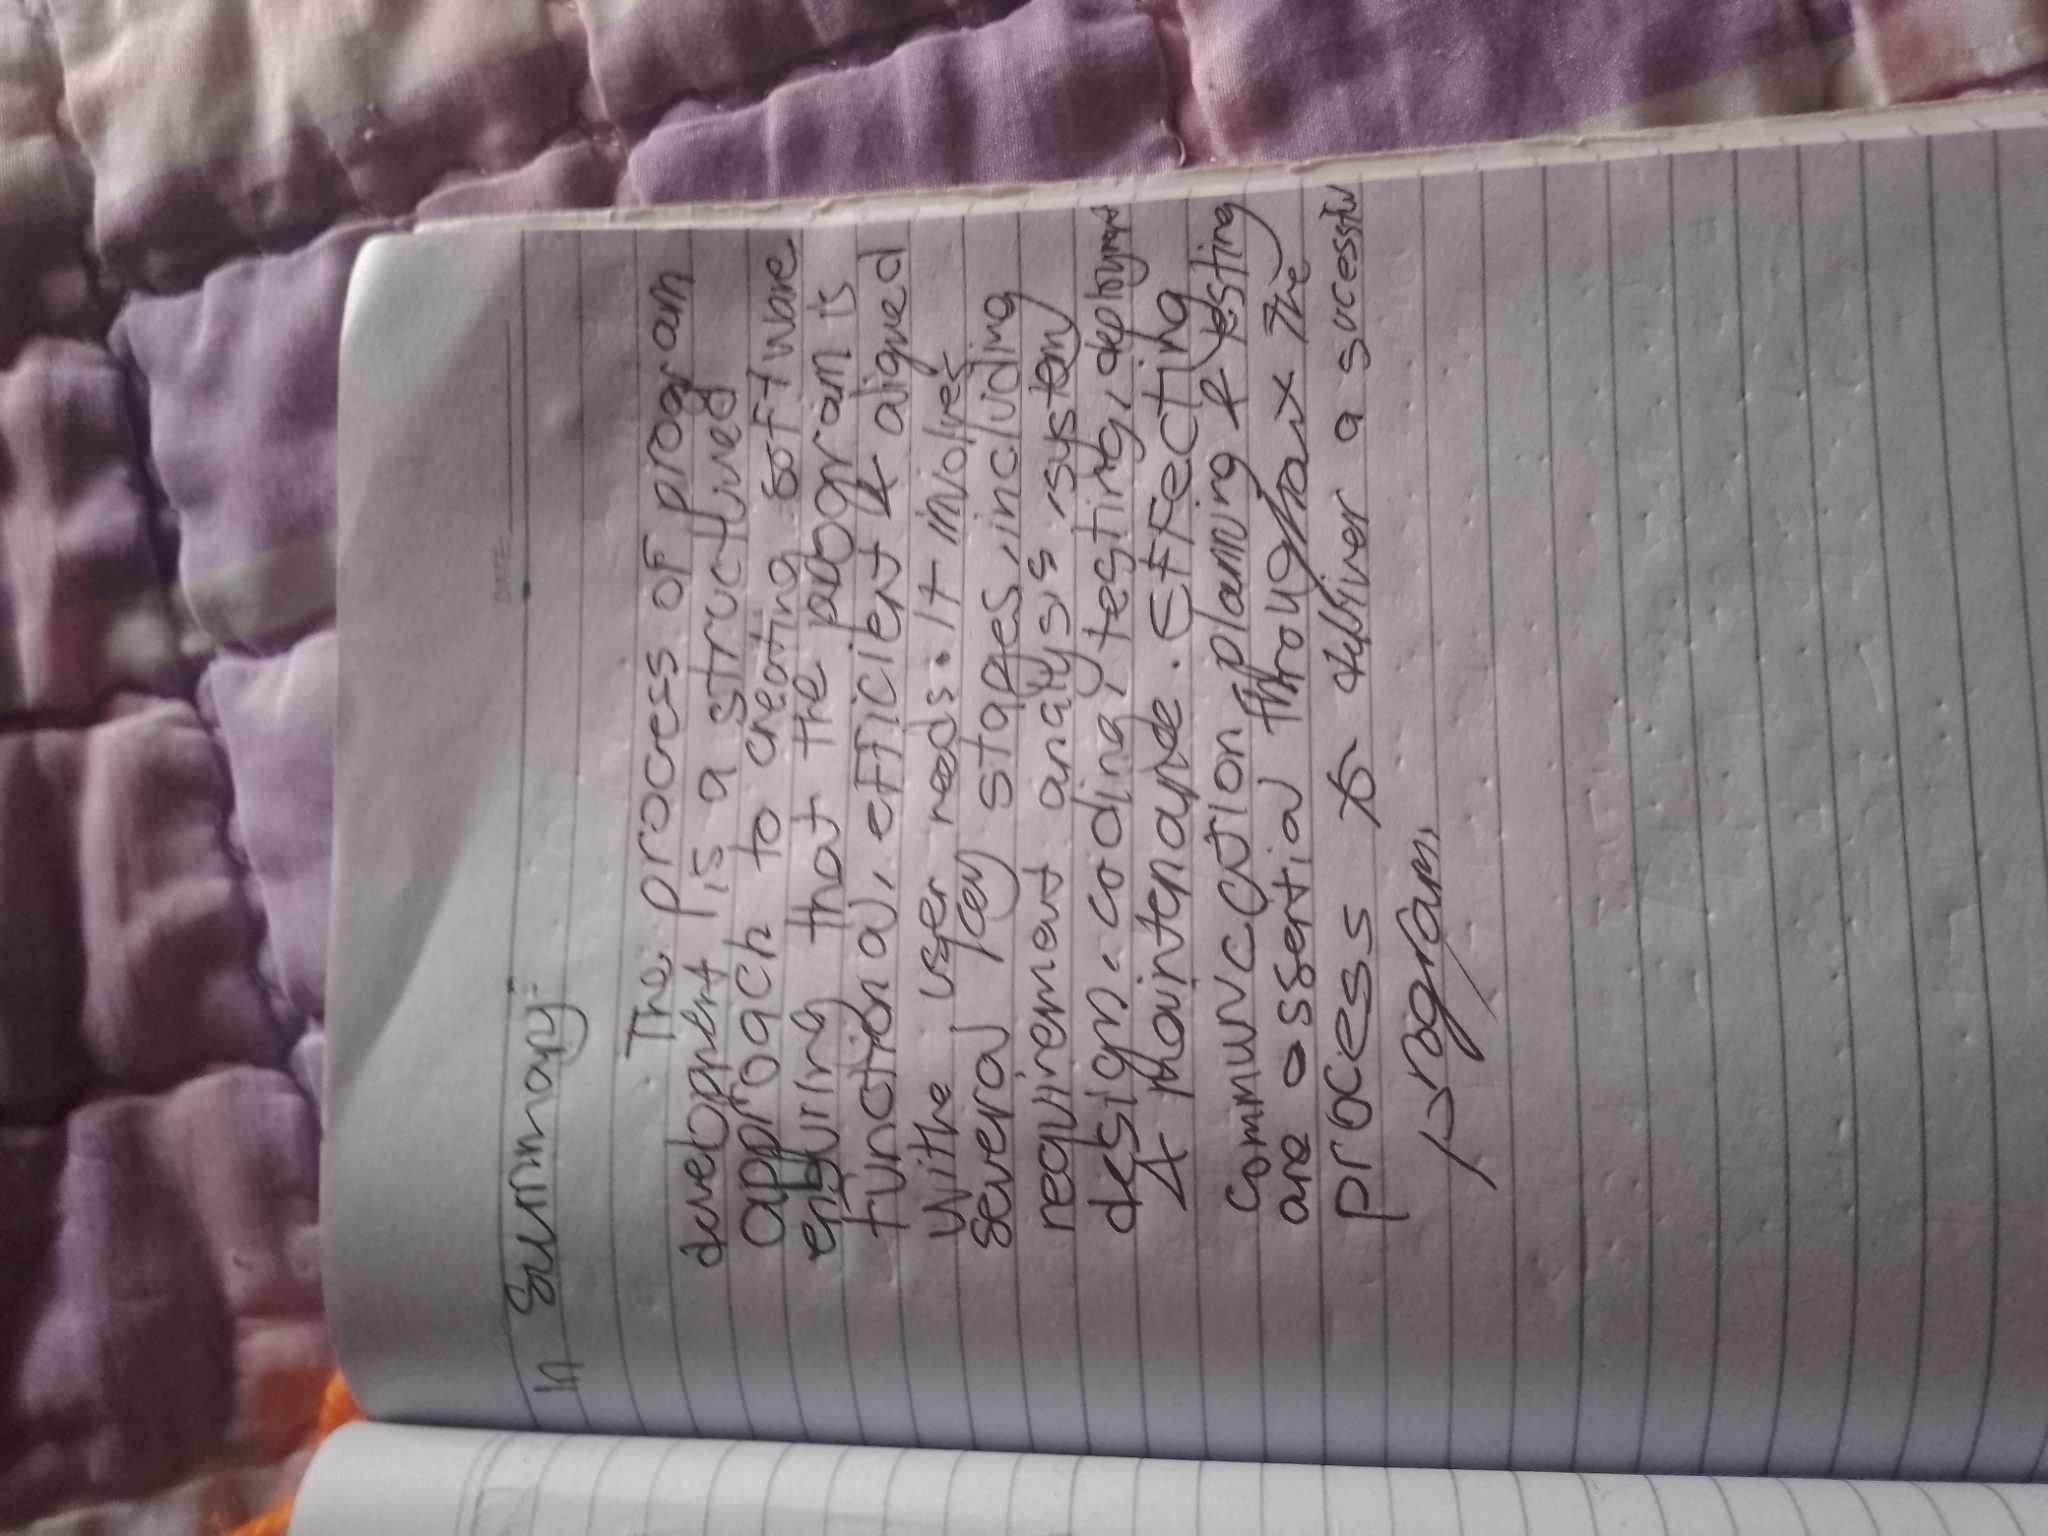 DATE:
In Summary:-
The process of program
development is a structured
approach to creating software
ensuring that the program is
functional, efficient & aligned
withe user needs. It involves
several key stages, including
requirement analysis, system
design, coding, testing, deployment
& maintenance. Effecting
communication planning & testing
are essential throughout the
process to deliver a sucessful
program.